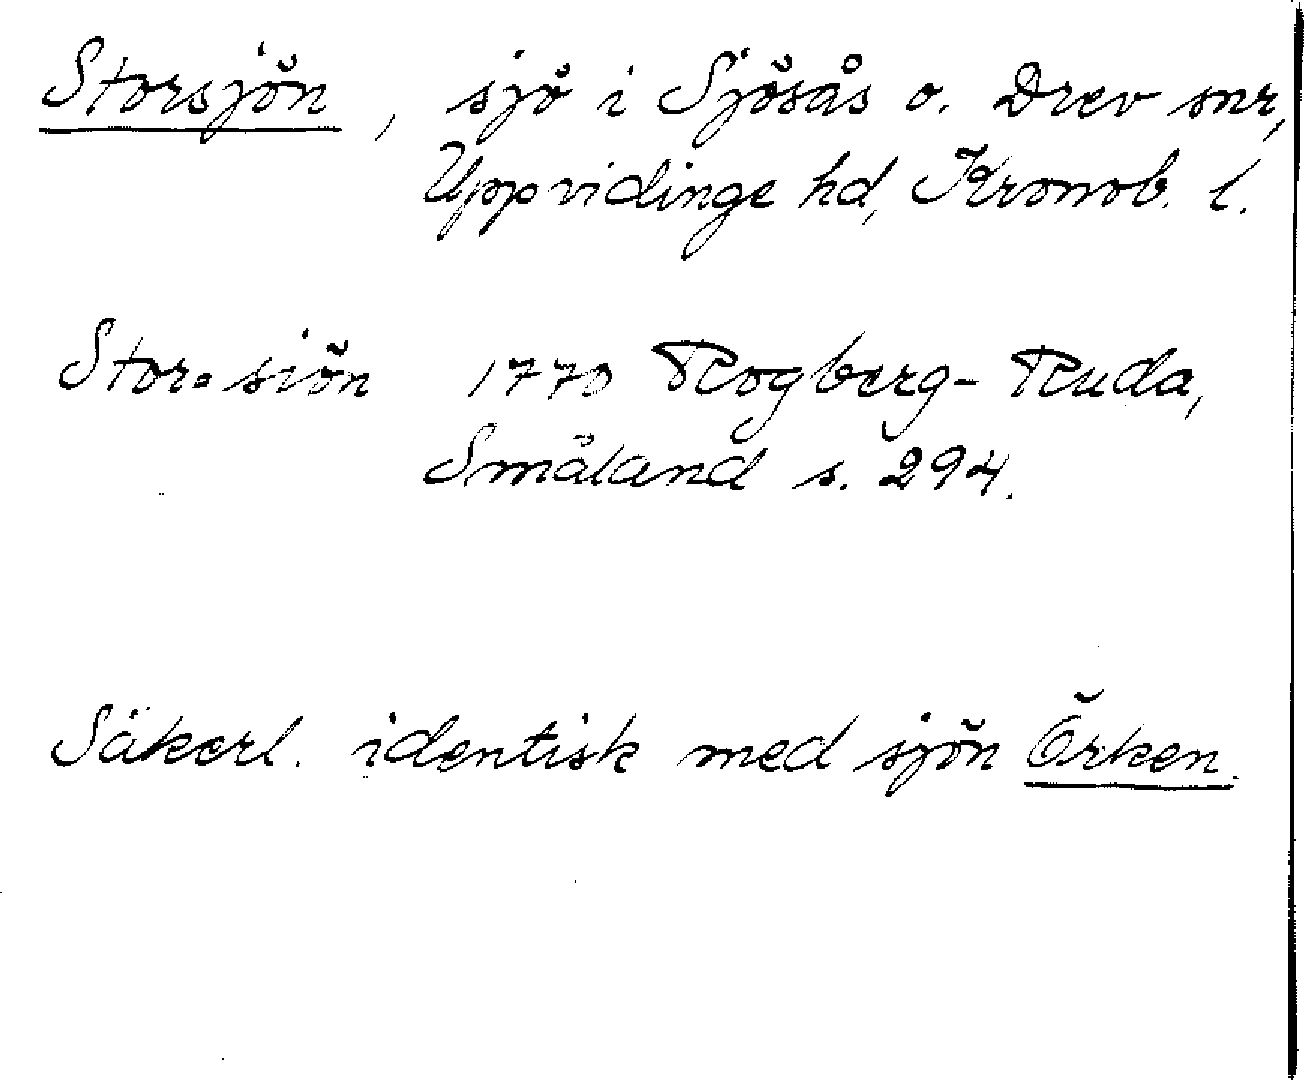 Storsjön, sjö i Sjösås o. Drev snr,
Uppvidinge hd, Kronob. l.
Stor=siön 1770 Rogberg-Ruda,
Småland s. 294.
Säkerl. identisk med sjön Örken.